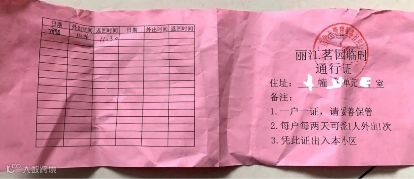 日期 外出时间 返回时间 日期 外出时间 返回时间
丽江茗园临时
通行证
住址: 幢 单元 室
备注:
1.一户一证,请妥善保管
2.每户每两天可需1人外出1次
3.凭此证出入本小区